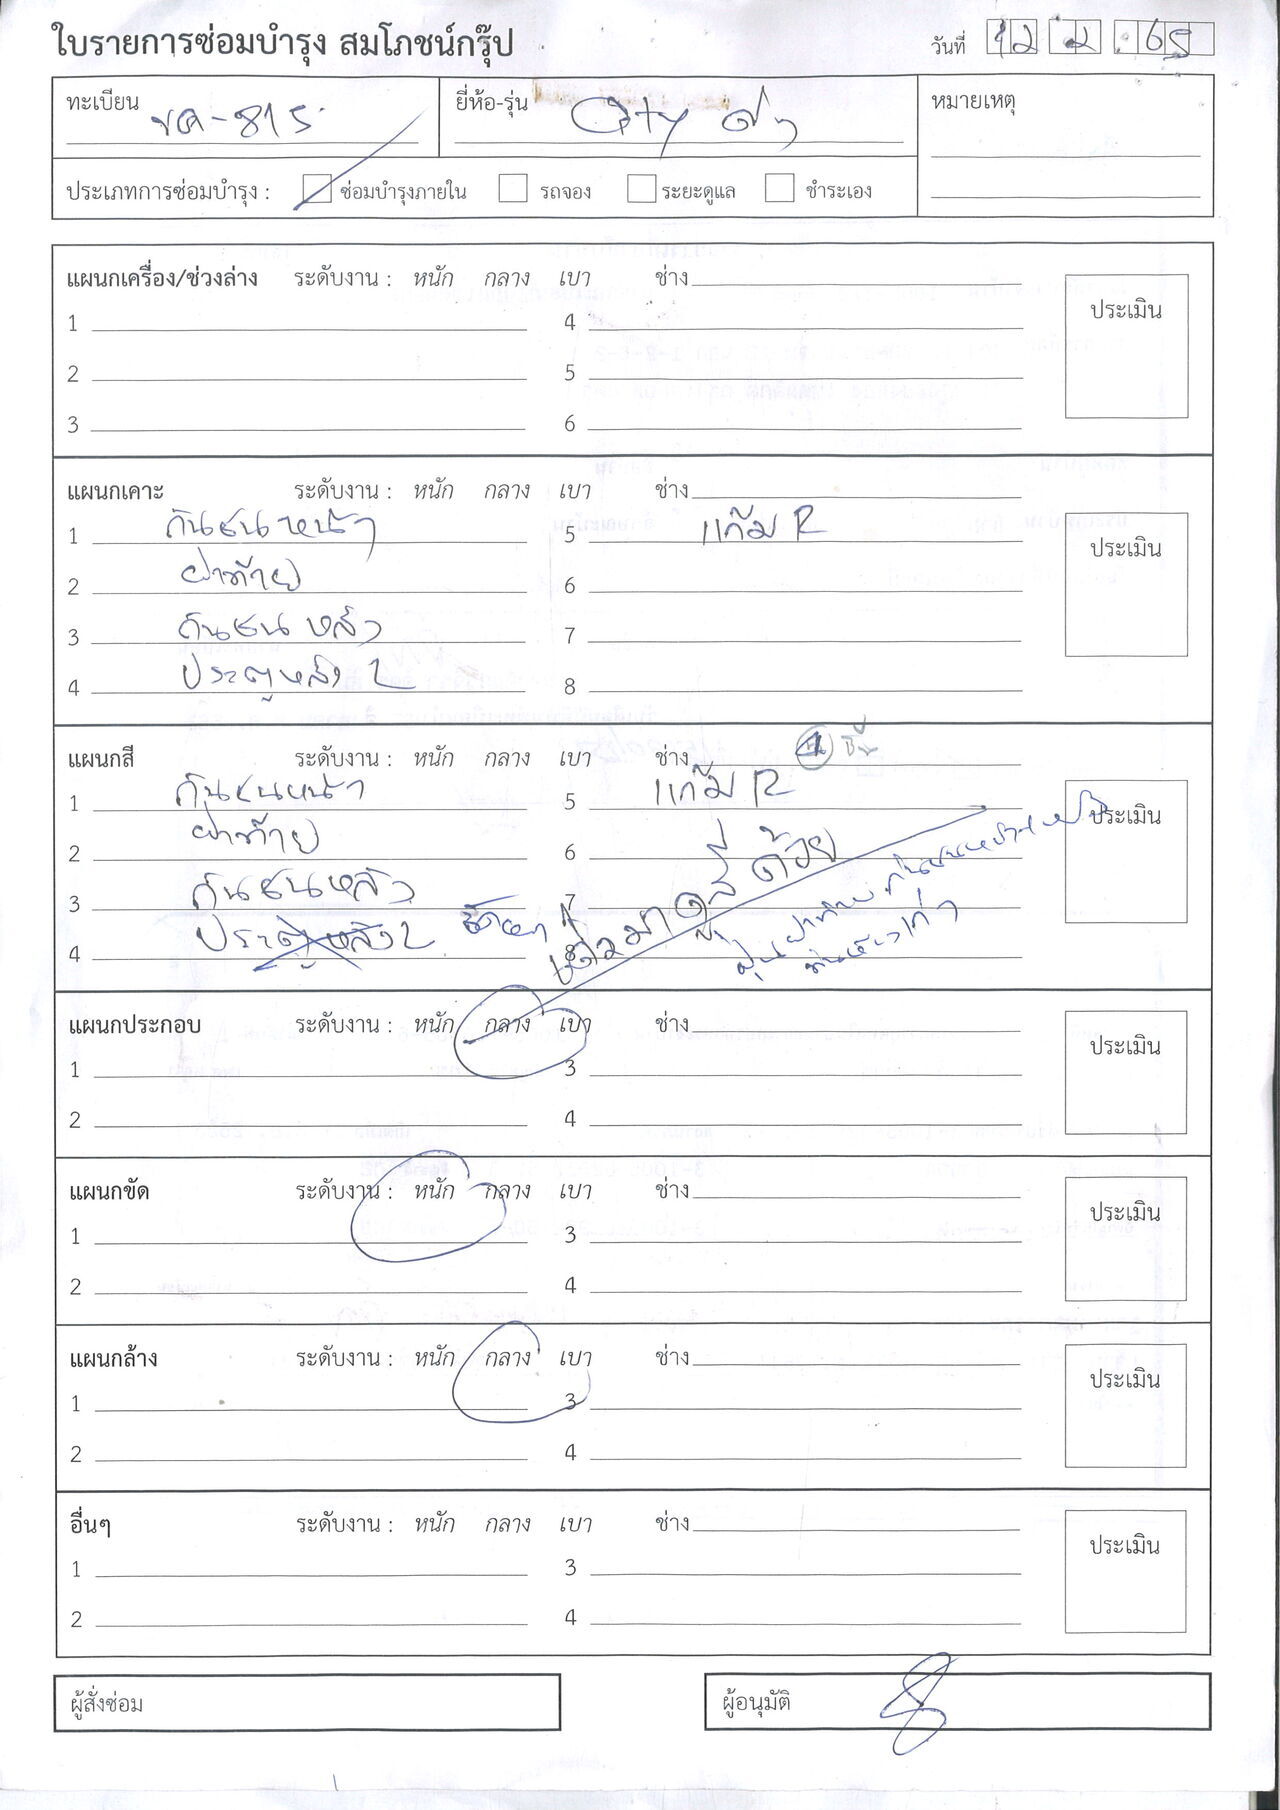 ใบรายการซ่อมบำรุง สมโภชน์กรุ๊ป
วันที่ 12 2 65
ทะเบียน ขค-815
ยี่ห้อ-รุ่น City ดำ
หมายเหตุ
ประเภทการซ่อมบำรุง : ซ่อมบำรุงภายใน รถจอง ระยะดูแล ชำระเอง
แผนกเครื่อง/ช่วงล่าง ระดับงาน : หนัก กลาง เบา ช่าง
ประเมิน
1 4
2 5
3 6
แผนกเคาะ ระดับงาน : หนัก กลาง เบา ช่าง
ประเมิน
1 กันชนหน้า 5 แก้ม R
2 ฝาท้าย 6
3 กันชนหลัง 7
4 ประตูหลัง L 8
แผนกสี ระดับงาน : หนัก กลาง เบา ช่าง
ประเมิน
1 กันชนหน้า 5 แก้ม R
2 ฝาท้าย 6
3 กันชนหลัง 7
4 ประตูหลัง L
แผนกประกอบ ระดับงาน : หนัก กลาง เบา ช่าง
ประเมิน
1 3
2 4
แผนกขัด ระดับงาน : หนัก กลาง เบา ช่าง
ประเมิน
1 3
2 4
แผนกล้าง ระดับงาน : หนัก กลาง เบา ช่าง
ประเมิน
1 3
2 4
อื่นๆ ระดับงาน : หนัก กลาง เบา ช่าง
ประเมิน
1 3
2 4
ผู้สั่งซ่อม
ผู้อนุมัติ